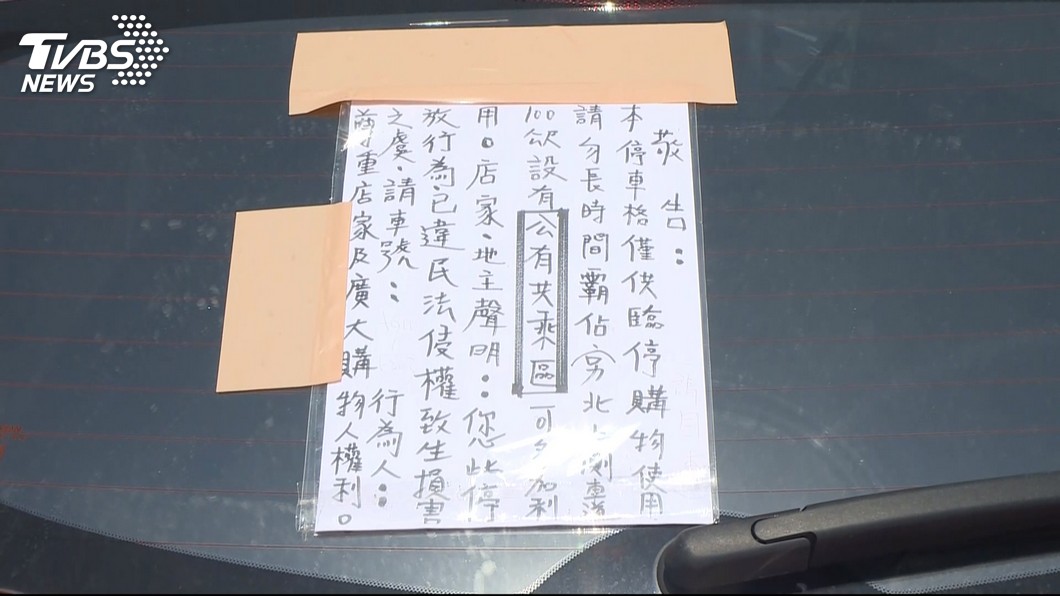 TVBS
NEWS
敬告:
本停車格僅供臨停購物使用
請勿長時間霸佔(旁北上側
100 設有公有共乘區可多加利
用。店家、地主聲明:您此停
放行為、已違民法侵權致生損害
之虞、請車號: 行為人:
尊重店家及廣大購物人權利。